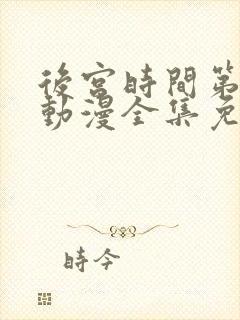 後宮時間第
動漫全集免
時今